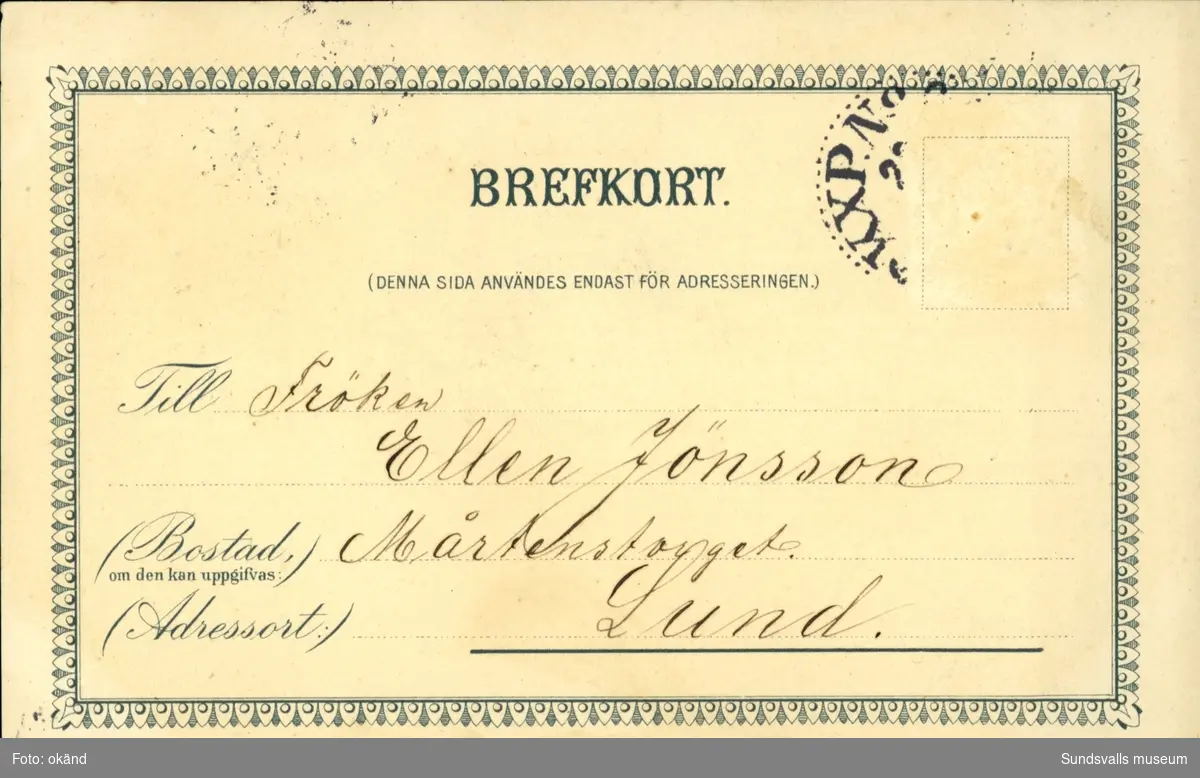 BREFKORT.
PKXP. No
(DENNA SIDA ANVÄNDES ENDAST FÖR ADRESSERINGEN.)
Till Fröken
Ellen Jönsson
(Bostad,) Mårtenstorget.
om den kan uppgifvas:
(Adressort:) Lund.
Foto: okänd
Sundsvalls museum